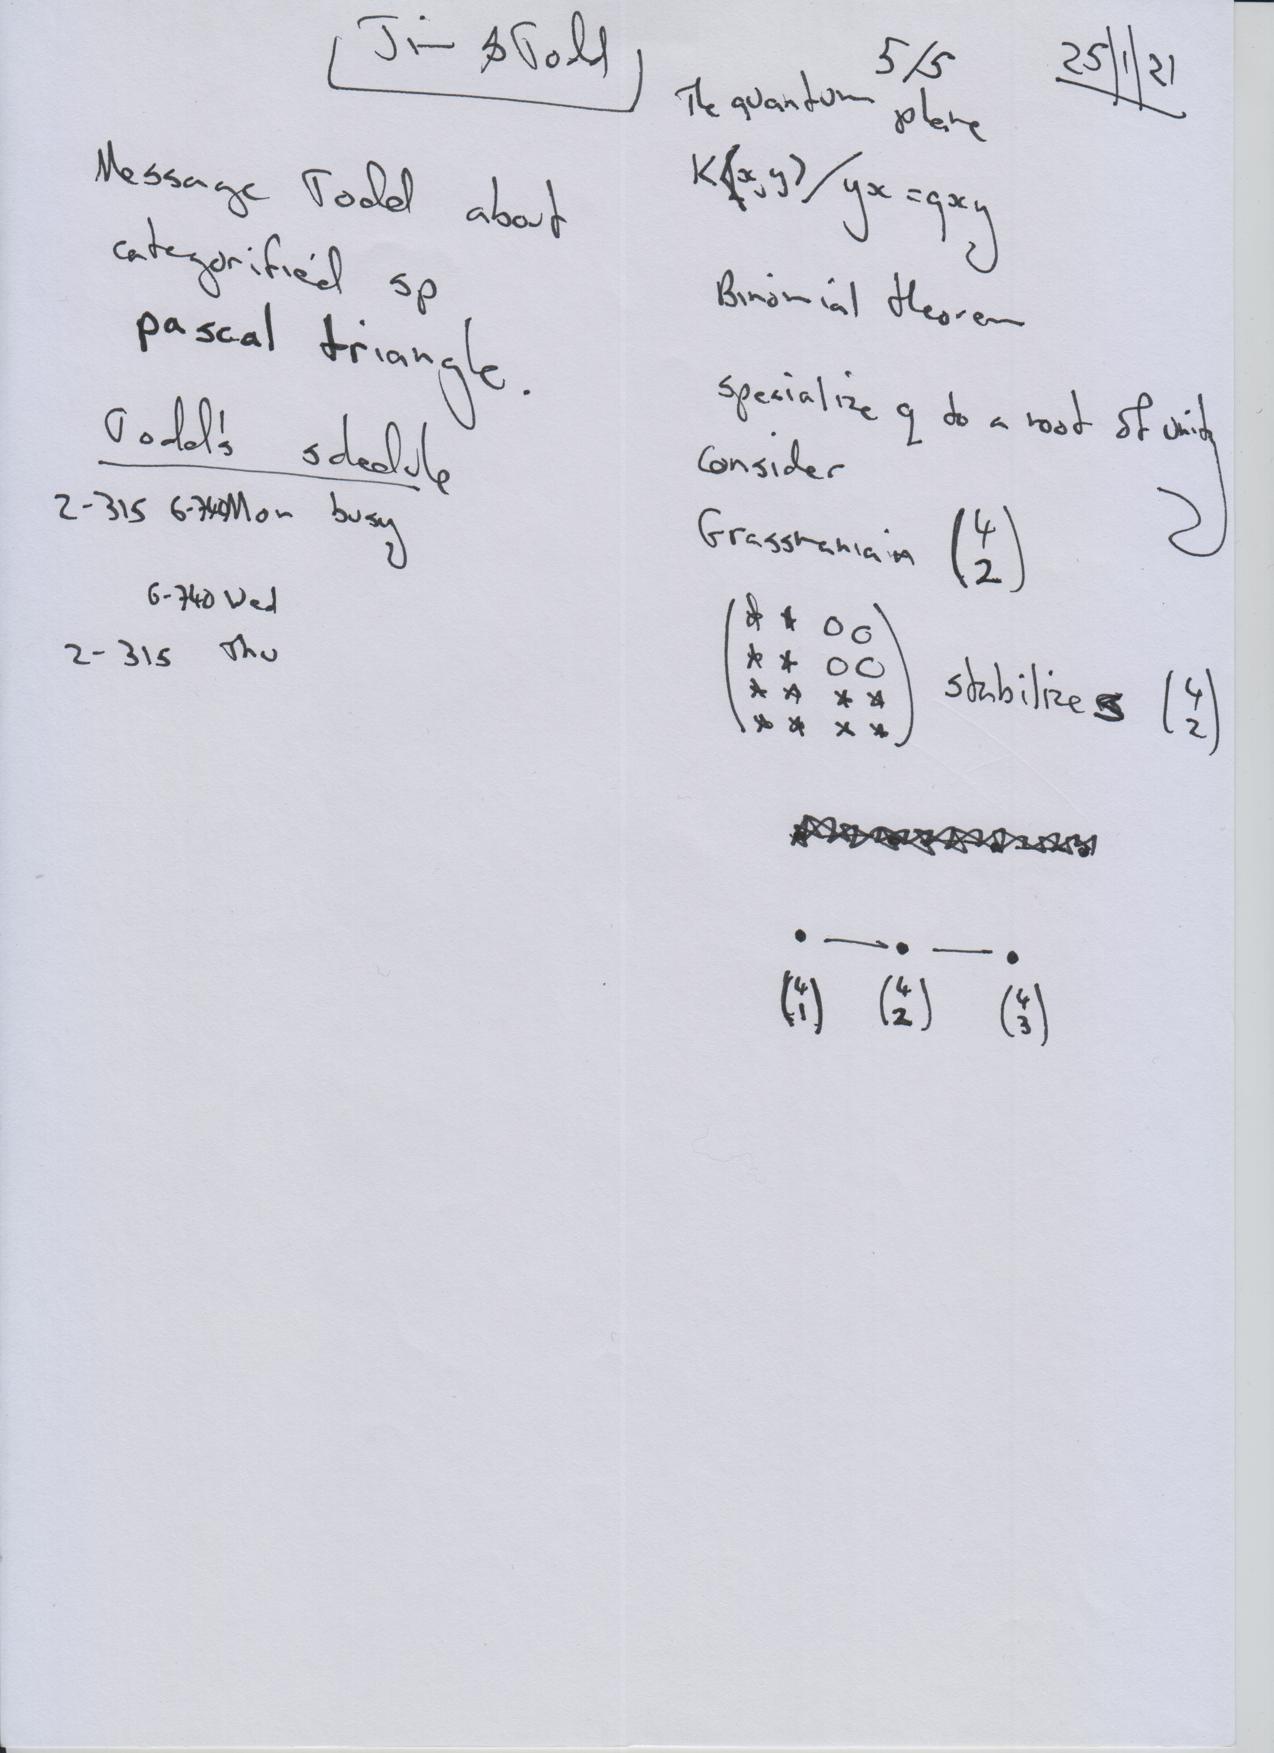 Jim & Todd
5/5
25/1/21
Message Todd about
categorified sp
pascal triangle.
Todd's schedule
2-315 6-740 Mon busy
6-740 Wed
2-315 Thu
The quantum plane
K⟨x,y⟩/yx=qxy
Binomial theorem
specialize q to a root of unity
Consider
Grassmaniain (4 2)
(* * 0 0
* * 0 0
* * * *
* * * *) stabilizes (4 2)
• — • — •
(4 1) (4 2) (4 3)